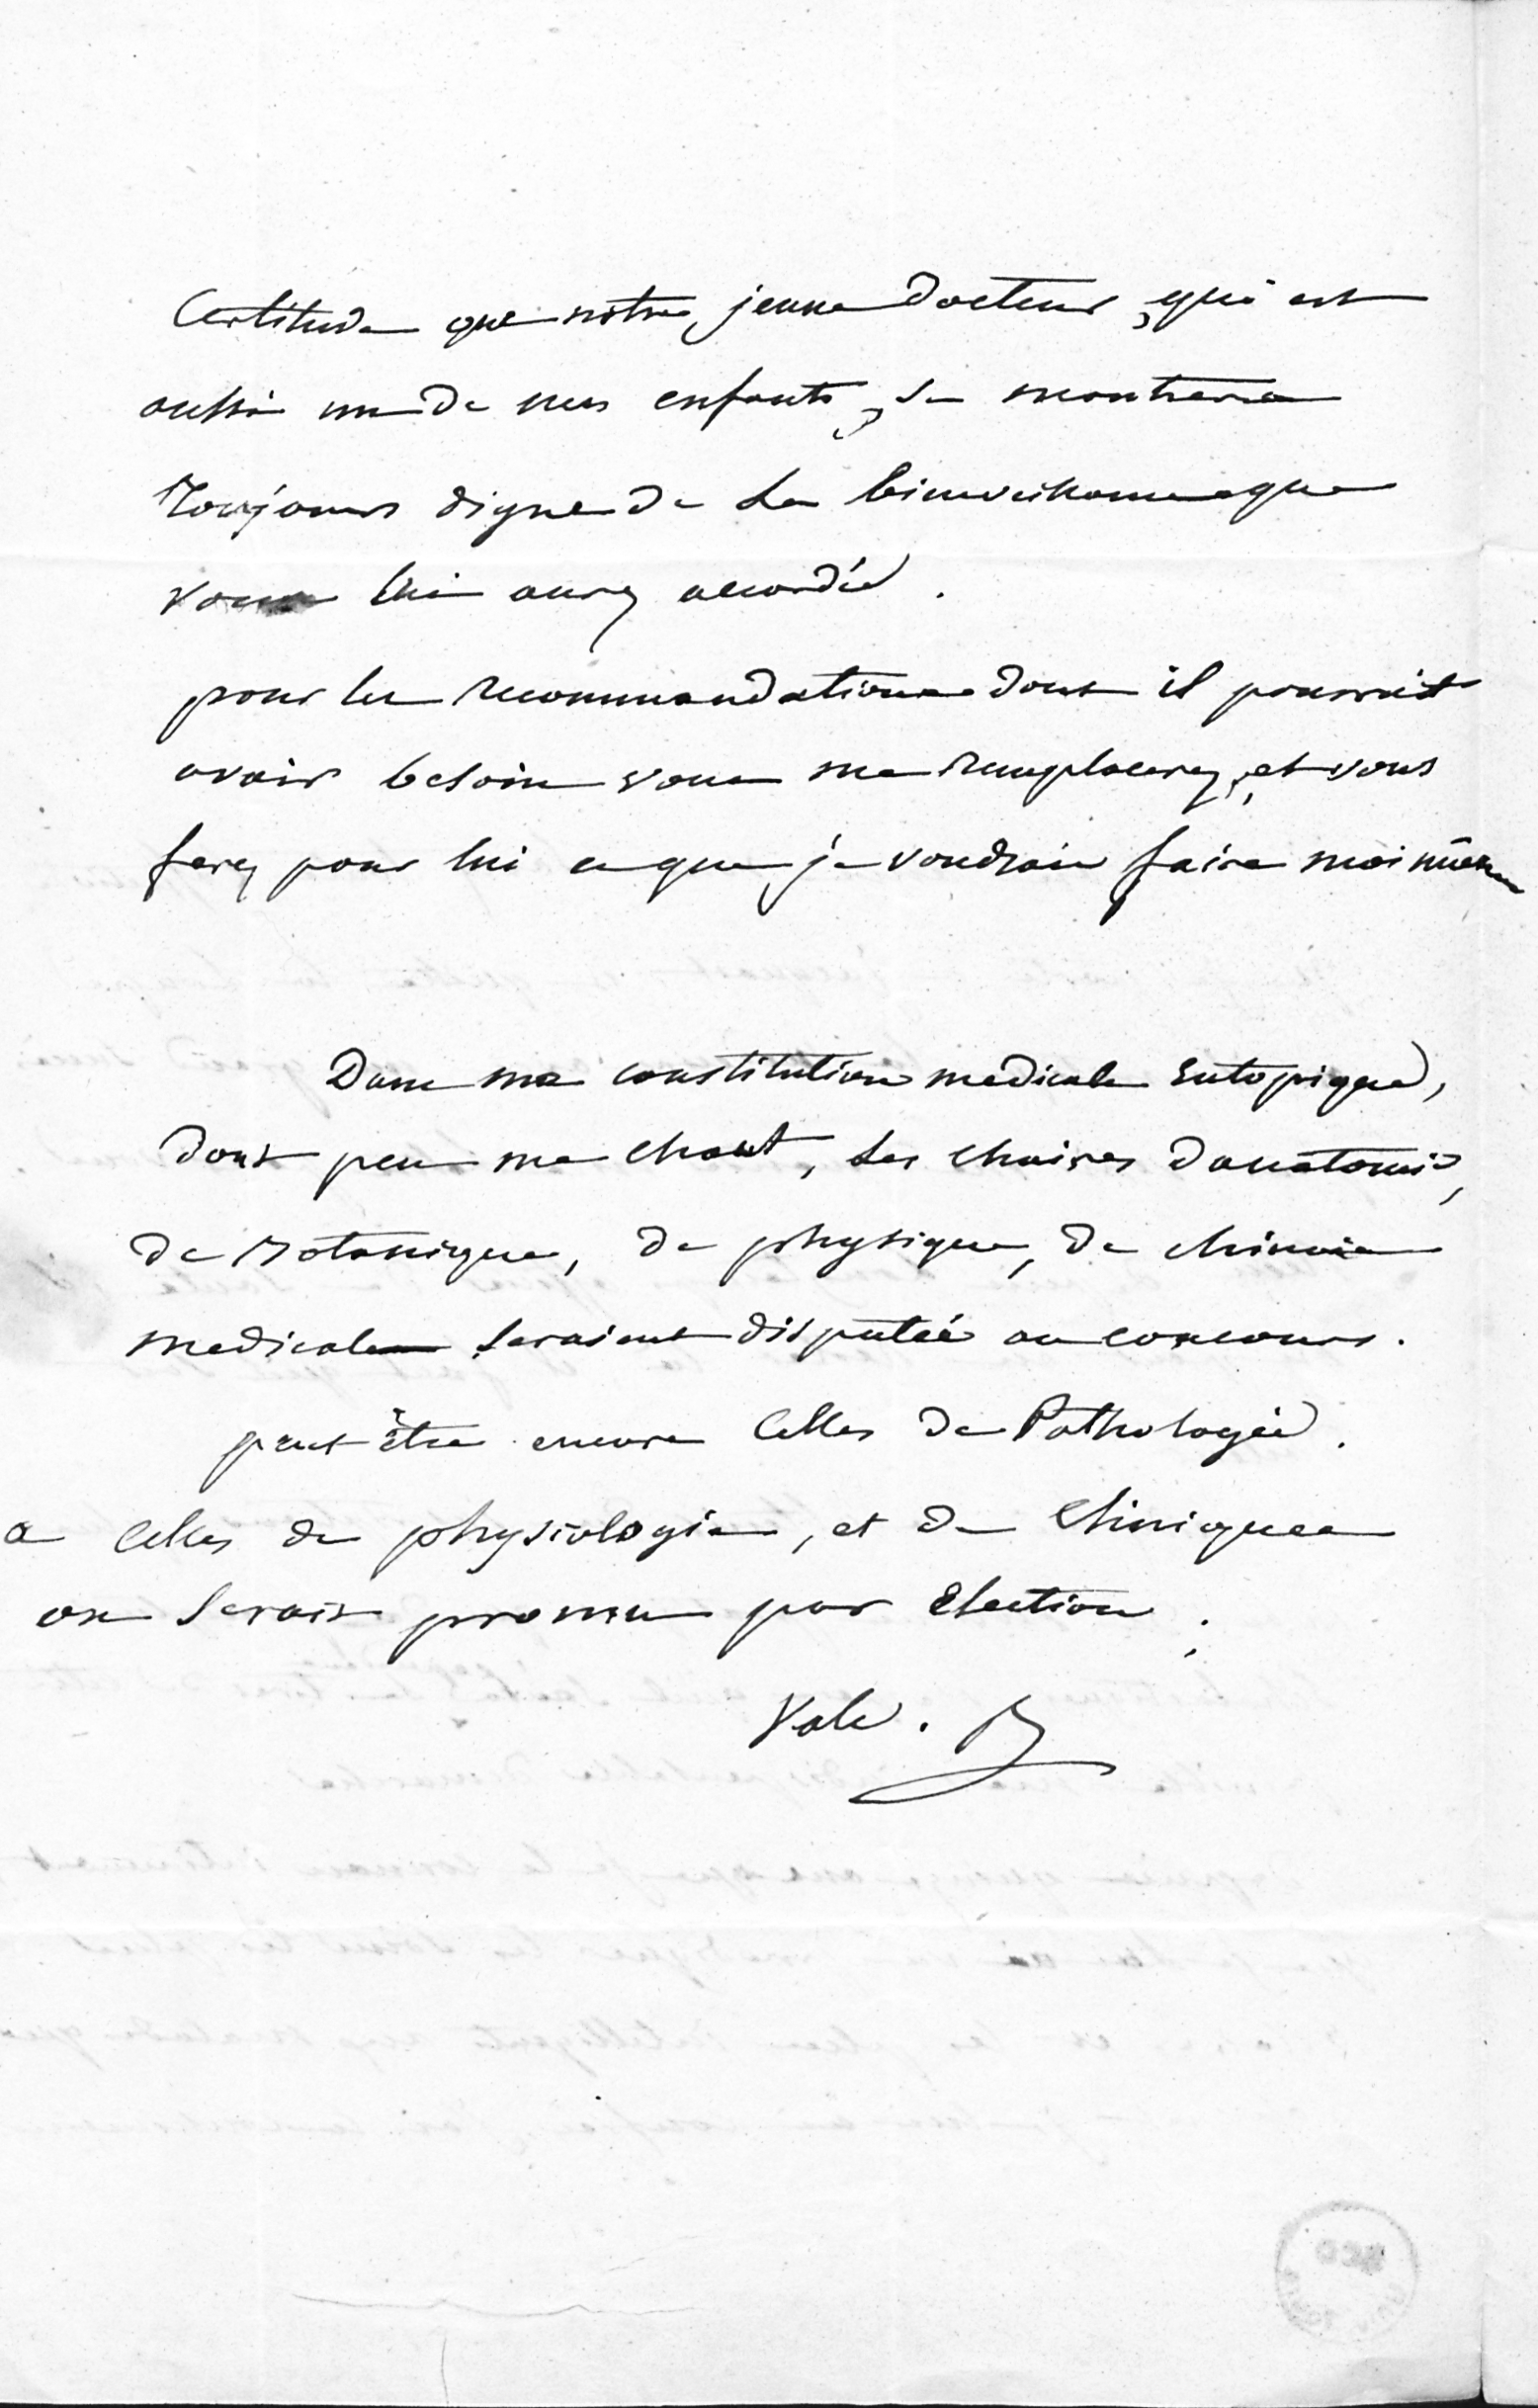 Certitude que notre jeune docteur, qui est
aussi un de mes enfants, se montrera
toujours digne de la bienveillance que
vous lui aurez accordée.
pour les recommandations dont il pourrait
avoir besoin vous me remplacerez, et vous
ferez pour lui ce que je voudrais faire moi même
Dans ma constitution medicale
dont peu me chaut, les chaires d'anatomie,
de Botanique, de physique, de chimie
medicale seraient disputées au concours.
peut être encore celles de Pathologie.
a celles de physiologie, et de Cliniques
on serait promu par Election.
Vale.